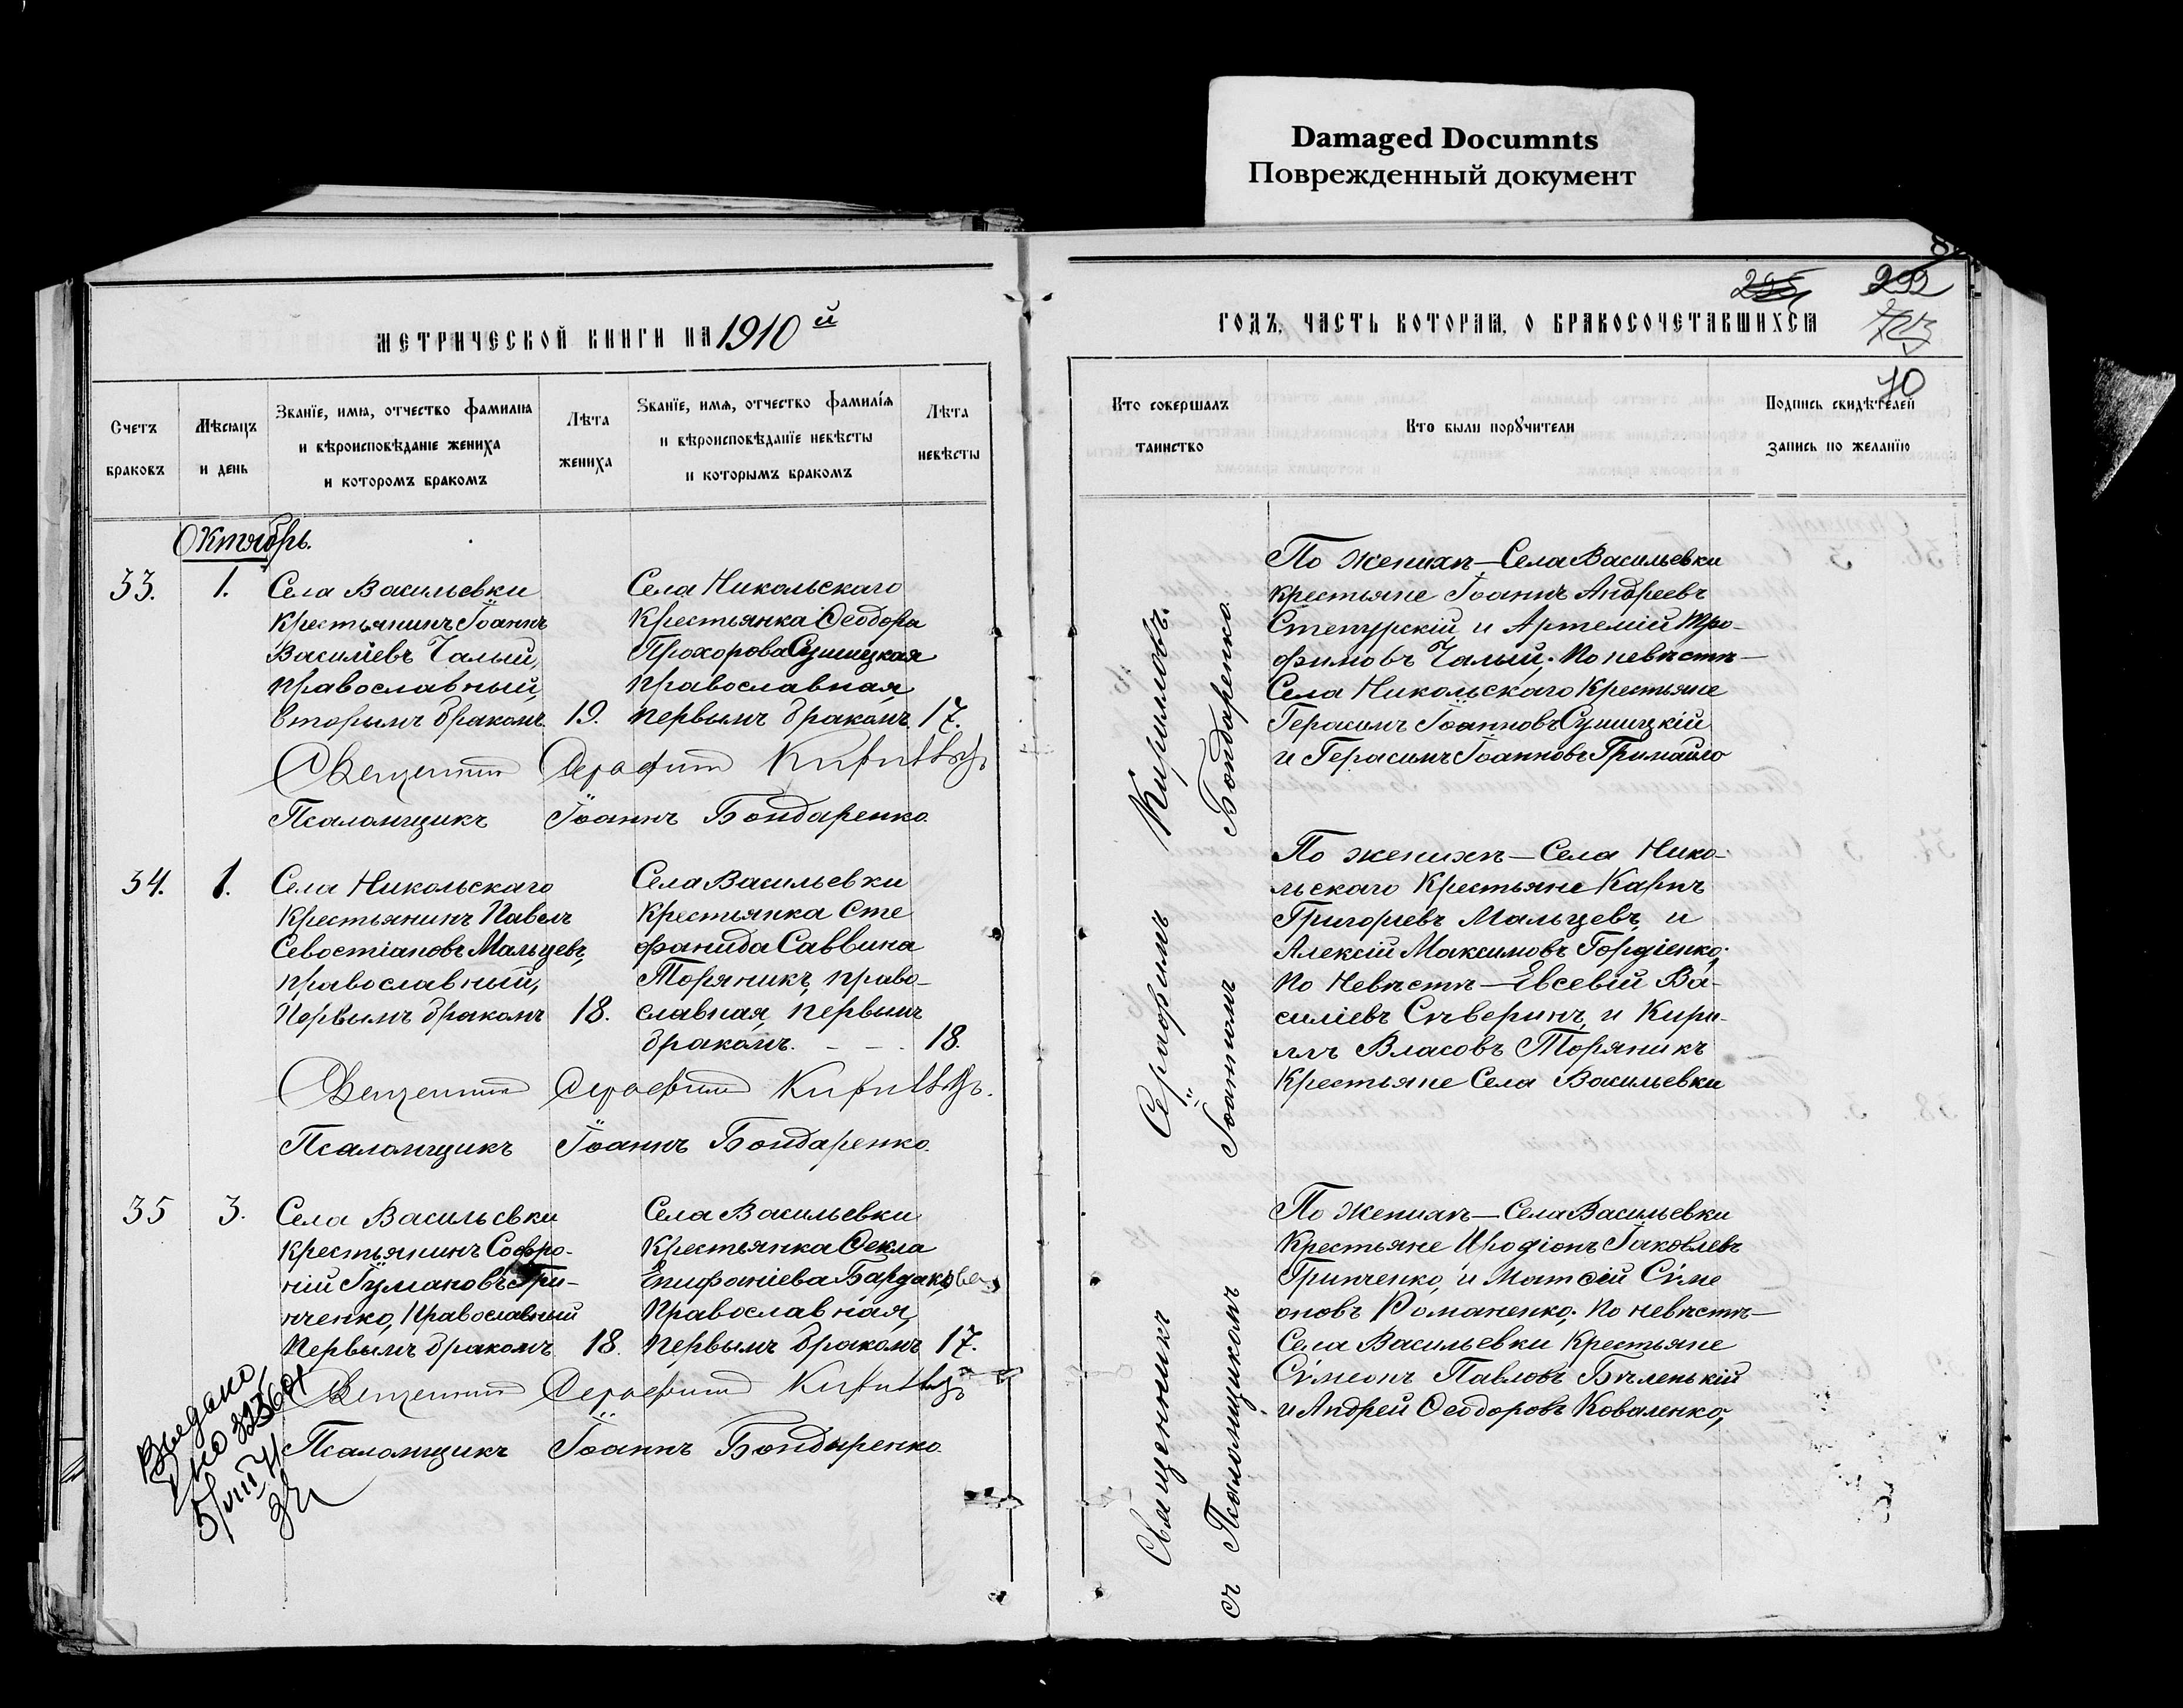 Damaged Documnts
Поврежденный документ
МЕТРИЧЕСКОЙ КНИГИ НА 1910й
Счетъ браковъ
Мѣсяцъ и день
Званїе, имя, отчество фамилїя
и вѣроисповѣданїе жениха
и которомъ бракомъ
Лѣта жениха
Званїе, имя, отчество фамилїя
и вѣроисповѣданїе невѣсты
и которымъ бракомъ
Лѣта невѣсты
Октябрь.
33.
1.
Села Васильевки
крестьянинъ Іоаннъ
Василіевъ Чалый,
православный,
вторымъ бракомъ.
19.
Села Никольскаго
крестьянка Ѳеодора
Прохорова Сушицкая
православная,
первымъ бракомъ
17.
Священникъ Серафимъ Кирилловъ
Псаломщикъ Іоаннъ Бондаренко.
34.
1.
Села Никольскаго
крестьянинъ Павелъ
Севостіановъ Мальцевъ,
православный,
первымъ бракомъ
18.
Села Васильевки
крестьянка Сте
фанида Саввина
Торяникъ, право-
славная, первымъ
бракомъ.
18.
Священникъ Серафимъ Кирилловъ.
Псаломщикъ Іоаннъ Бондаренко.
35
3.
Села Васильевки
крестьянинъ Софро-
ній
нченко, православный
первымъ бракомъ
18.
Села Васильевки
крестьянка Ѳекла
Епифаніева Бардакова
православная,
первымъ бракомъ
17.
Священникъ Серафимъ Кирилловъ
Псаломщикъ Іоаннъ Бондаренко.
Выдано
ГОДЪ, ЧАСТЬ ВТОРАЯ, О БРАКОСОЧЕТАВШИХСЯ
292
40
Кто совершалъ
таинство
Кто были порꙋчители
Подпись свидѣтелей
запись по желанїю
Священникъ Серафимъ Кирилловъ.
съ Псаломщикомъ Іоанномъ Бондаренко.
По женихѣ — Села Васильевки
крестьяне Іоаннъ Андреевъ
Степурскій, и Артемій Тро-
фимовъ Чалый; по невѣстѣ —
Села Никольскаго крестьяне
Герасимъ Іоанновъ Сушицкій
и Герасимъ Іоанновъ Гримайло
По женихѣ — Села Нико-
льскаго крестьяне Карпъ
Григоріевъ Мальцевъ, и
Алексій Максимовъ Гордіенко;
по невѣстѣ — Евсевій Ва-
силіевъ Сѣверинъ, и Кири-
ллъ Власовъ Торяникъ
крестьяне Села Васильевки
По женихѣ — Села Васильевки
крестьяне Иродіонъ Іаковлевъ
Гринченко, и Матѳій Сѵме
оновъ Романенко; по невѣстѣ —
Села Васильевки крестьяне
Сѵмеонъ Павловъ Бѣленькій
и Андрей Ѳеодоровъ Коваленко,